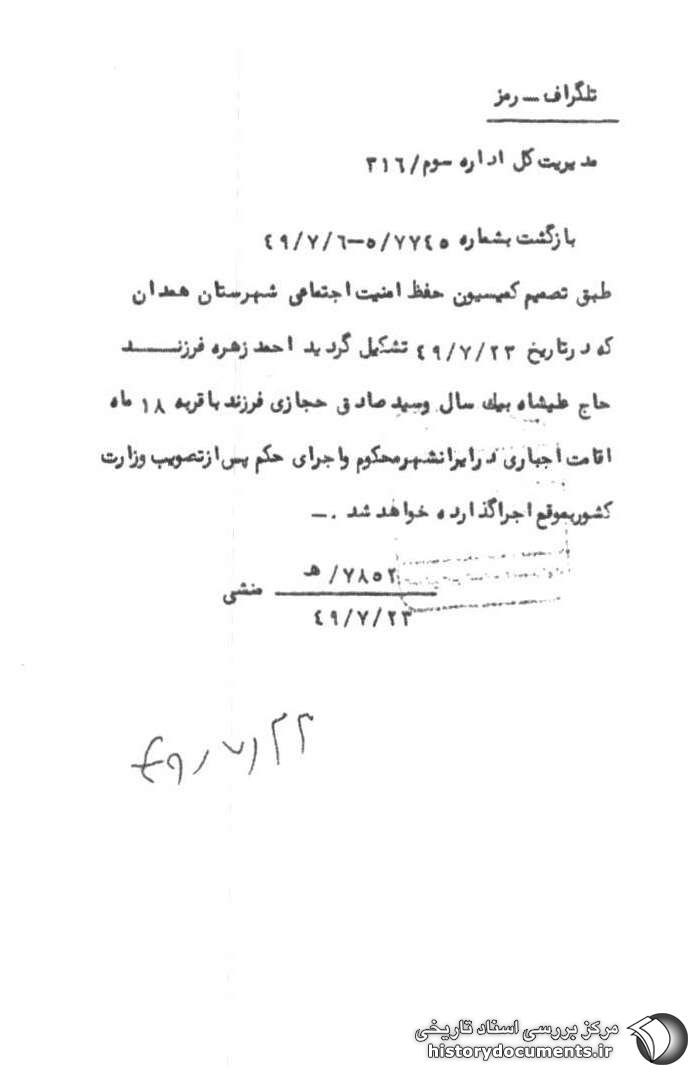 تلگراف ــ رمز
مدیریت کل اداره سوم/۳۱۶
بازگشت بشماره ۵/۷۷۴۵-۴۹/۷/۶
طبق تصمیم کمیسیون حفظ امنیت اجتماعی شهرستان همدان
که در تاریخ ۴۹/۷/۲۳ تشکیل گردید احمد زهره فرزنـــد
حاج علیشاه بیک سال وسید صادق حجازی فرزند باقربه ۱۸ ماه
اقامت اجباری در ایرانشهر محکوم واجرای حکم پس از تصویب وزارت
کشور بموقع اجرا گذارده خواهد شد .ــ
۷۸۵۲/ هـ
منشی
۴۹/۷/۲۳
۴۹/۷/۲۳
مرکز بررسی اسناد تاریخی
historydocuments.ir